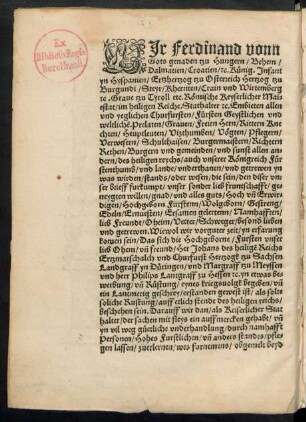 Ex
Biblioth. Regia
Berolinensi.
WIr Ferdinand vonn
Gots genaden tzu Hungern / Behem /
Dalmatien / Croatien / ꝛc. König. Infant
yn Hyspanien / Ertzhertzog tzu Osterreich Hertzog tzu
Burgundi / Steyr / Khernten / Crain vnd Wirtemberg
ꝛc. Graue tzu Tyroll ꝛc. Römischer Keyserlicher Maie
stat / im heiligen Reiche, Stathalter ꝛc. Embieten allen
vnd yeglichen Churfursten / Fürsten Geystlichen vnd
weltlichē. Prelaten / Grauen / Freien Hern / Rittern Knechten / Heuptleuten / Vitzthumben / Vögten / Pflegern /
Verwesern / Schulthaisen / Burgermaystern / Richtern
Rethen / Burgern vnd gemeinden / vnd sunst allen andern / des heiligen reychs / auch vnserer Königreich Fürstenthumb / vnd lande / vnderthanen / vnd getrewen yn
was wirden / stands / oder wesen / die sein / den diser vnser brieff furkumpt / vnser sonder lieb frumschafft / geneygten willen / gnad / vnd alles gut / Hoch vñ Erwirdigen / Hochgeborn Fürstem / Wolgeborn / Gestreng /
Edeln / Ernuesten / Ersamen gelertem / Namhafften /
lieb Freunde / Oheim / Vetter / Schwoger / besond lieben
vnd getrewen. Wiewol wir vorguter zeyt / yn erfarung
komen sein / Das sich die Hochgebornē / Fürsten vnser
lieb Ohem / vñ freund / Her Johans des heiligē Reichs
Ertzmarschalch vnd Churfurst Hertzog tzu Sachsen
Landgraff yn Düringen / vnd Margraf tzu Meyssen
vnd Herr Philips Lantgraff zu Hessen ꝛc. yn etwas bewerbung / vñ Rüstung / eynes kriegsuolgt begeben / vñ
ein Lantmerig geschrey / erstanden gewest ist / als solt
solche Rüstung / auff etlich stende des heiligen reichs /
beschehen sein. Darauff wir dan / als Keyserlicher Stathalter / der sachen mit fleys ein auffmercken gehabt / vñ
yn vil weg gütliche vnderhandlung / durch namhafft
Personen / Hohes Furstlichen / vñ anders stands / pflegen lassen / zuerlernen / was furnemens / obgemelt beyd